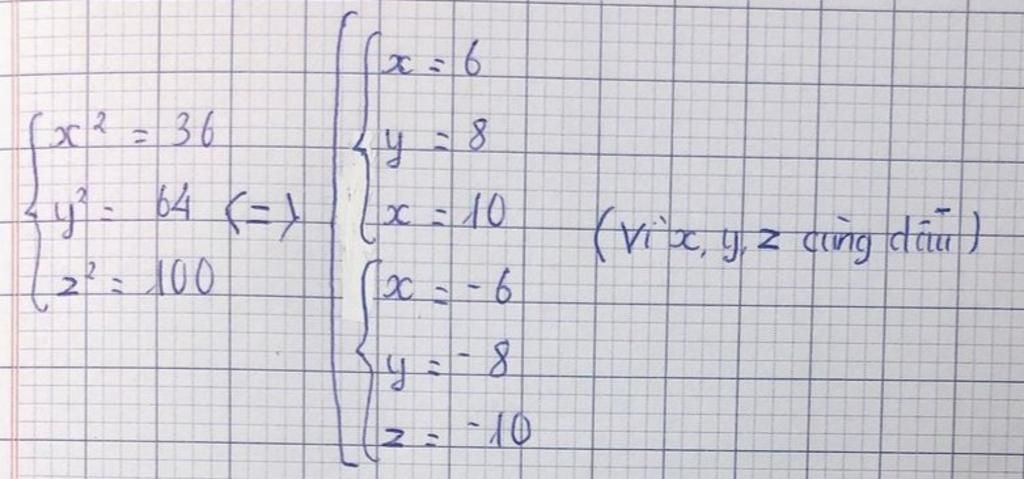 x² = 36
y² = 64 <=>
z² = 100
x = 6
y = 8
x = 10
x = -6
y = -8
z = -10
(Vì x, y, z cùng dấu)